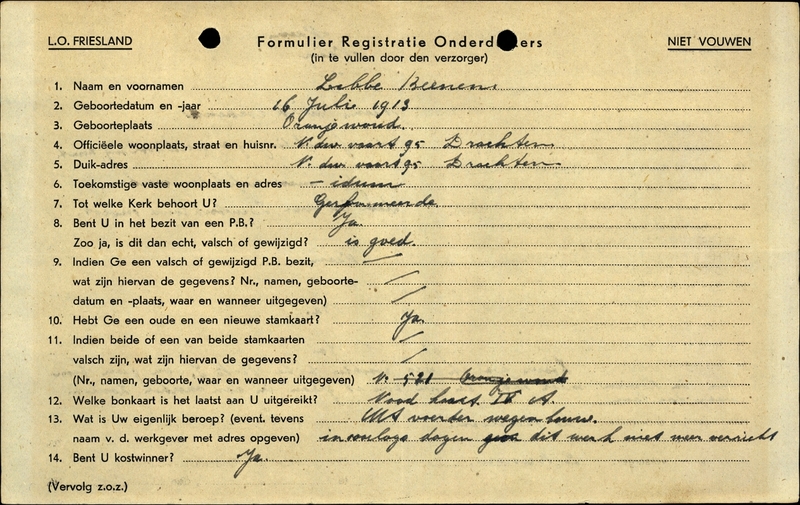 L.O. FRIESLAND
Formulier Registratie Onderduikers
NIET VOUWEN
(in te vullen door den verzorger)
1. Naam en voornamen Lebbe
2. Geboortedatum en -jaar 16 Julie 1913
3. Geboorteplaats Oranjewoud.
4. Officiëele woonplaats, straat en huisnr. N. dw. vaart 95 Drachten
5. Duik-adres N. dw. vaart 95 Drachten
6. Toekomstige vaste woonplaats en adres – idem
7. Tot welke Kerk behoort U?
8. Bent U in het bezit van een P.B.? Ja
Zoo ja, is dit dan echt, valsch of gewijzigd? is goed.
9. Indien Ge een valsch of gewijzigd P.B. bezit, /
wat zijn hiervan de gegevens? Nr., namen, geboorte- /
datum en -plaats, waar en wanneer uitgegeven) /
10. Hebt Ge een oude en een nieuwe stamkaart? Ja.
11. Indien beide of een van beide stamkaarten /
valsch zijn, wat zijn hiervan de gegevens? /
(Nr., namen, geboorte, waar en wanneer uitgegeven) N. 521 Oranjewoud
12. Welke bonkaart is het laatst aan U uitgereikt? Nood kaart
13. Wat is Uw eigenlijk beroep? (event. tevens Uit voerder wegenbouw.
naam v. d. werkgever met adres opgeven) in oorlogs dagen dit werk niet meer verricht
14. Bent U kostwinner? Ja.
(Vervolg z.o.z.)